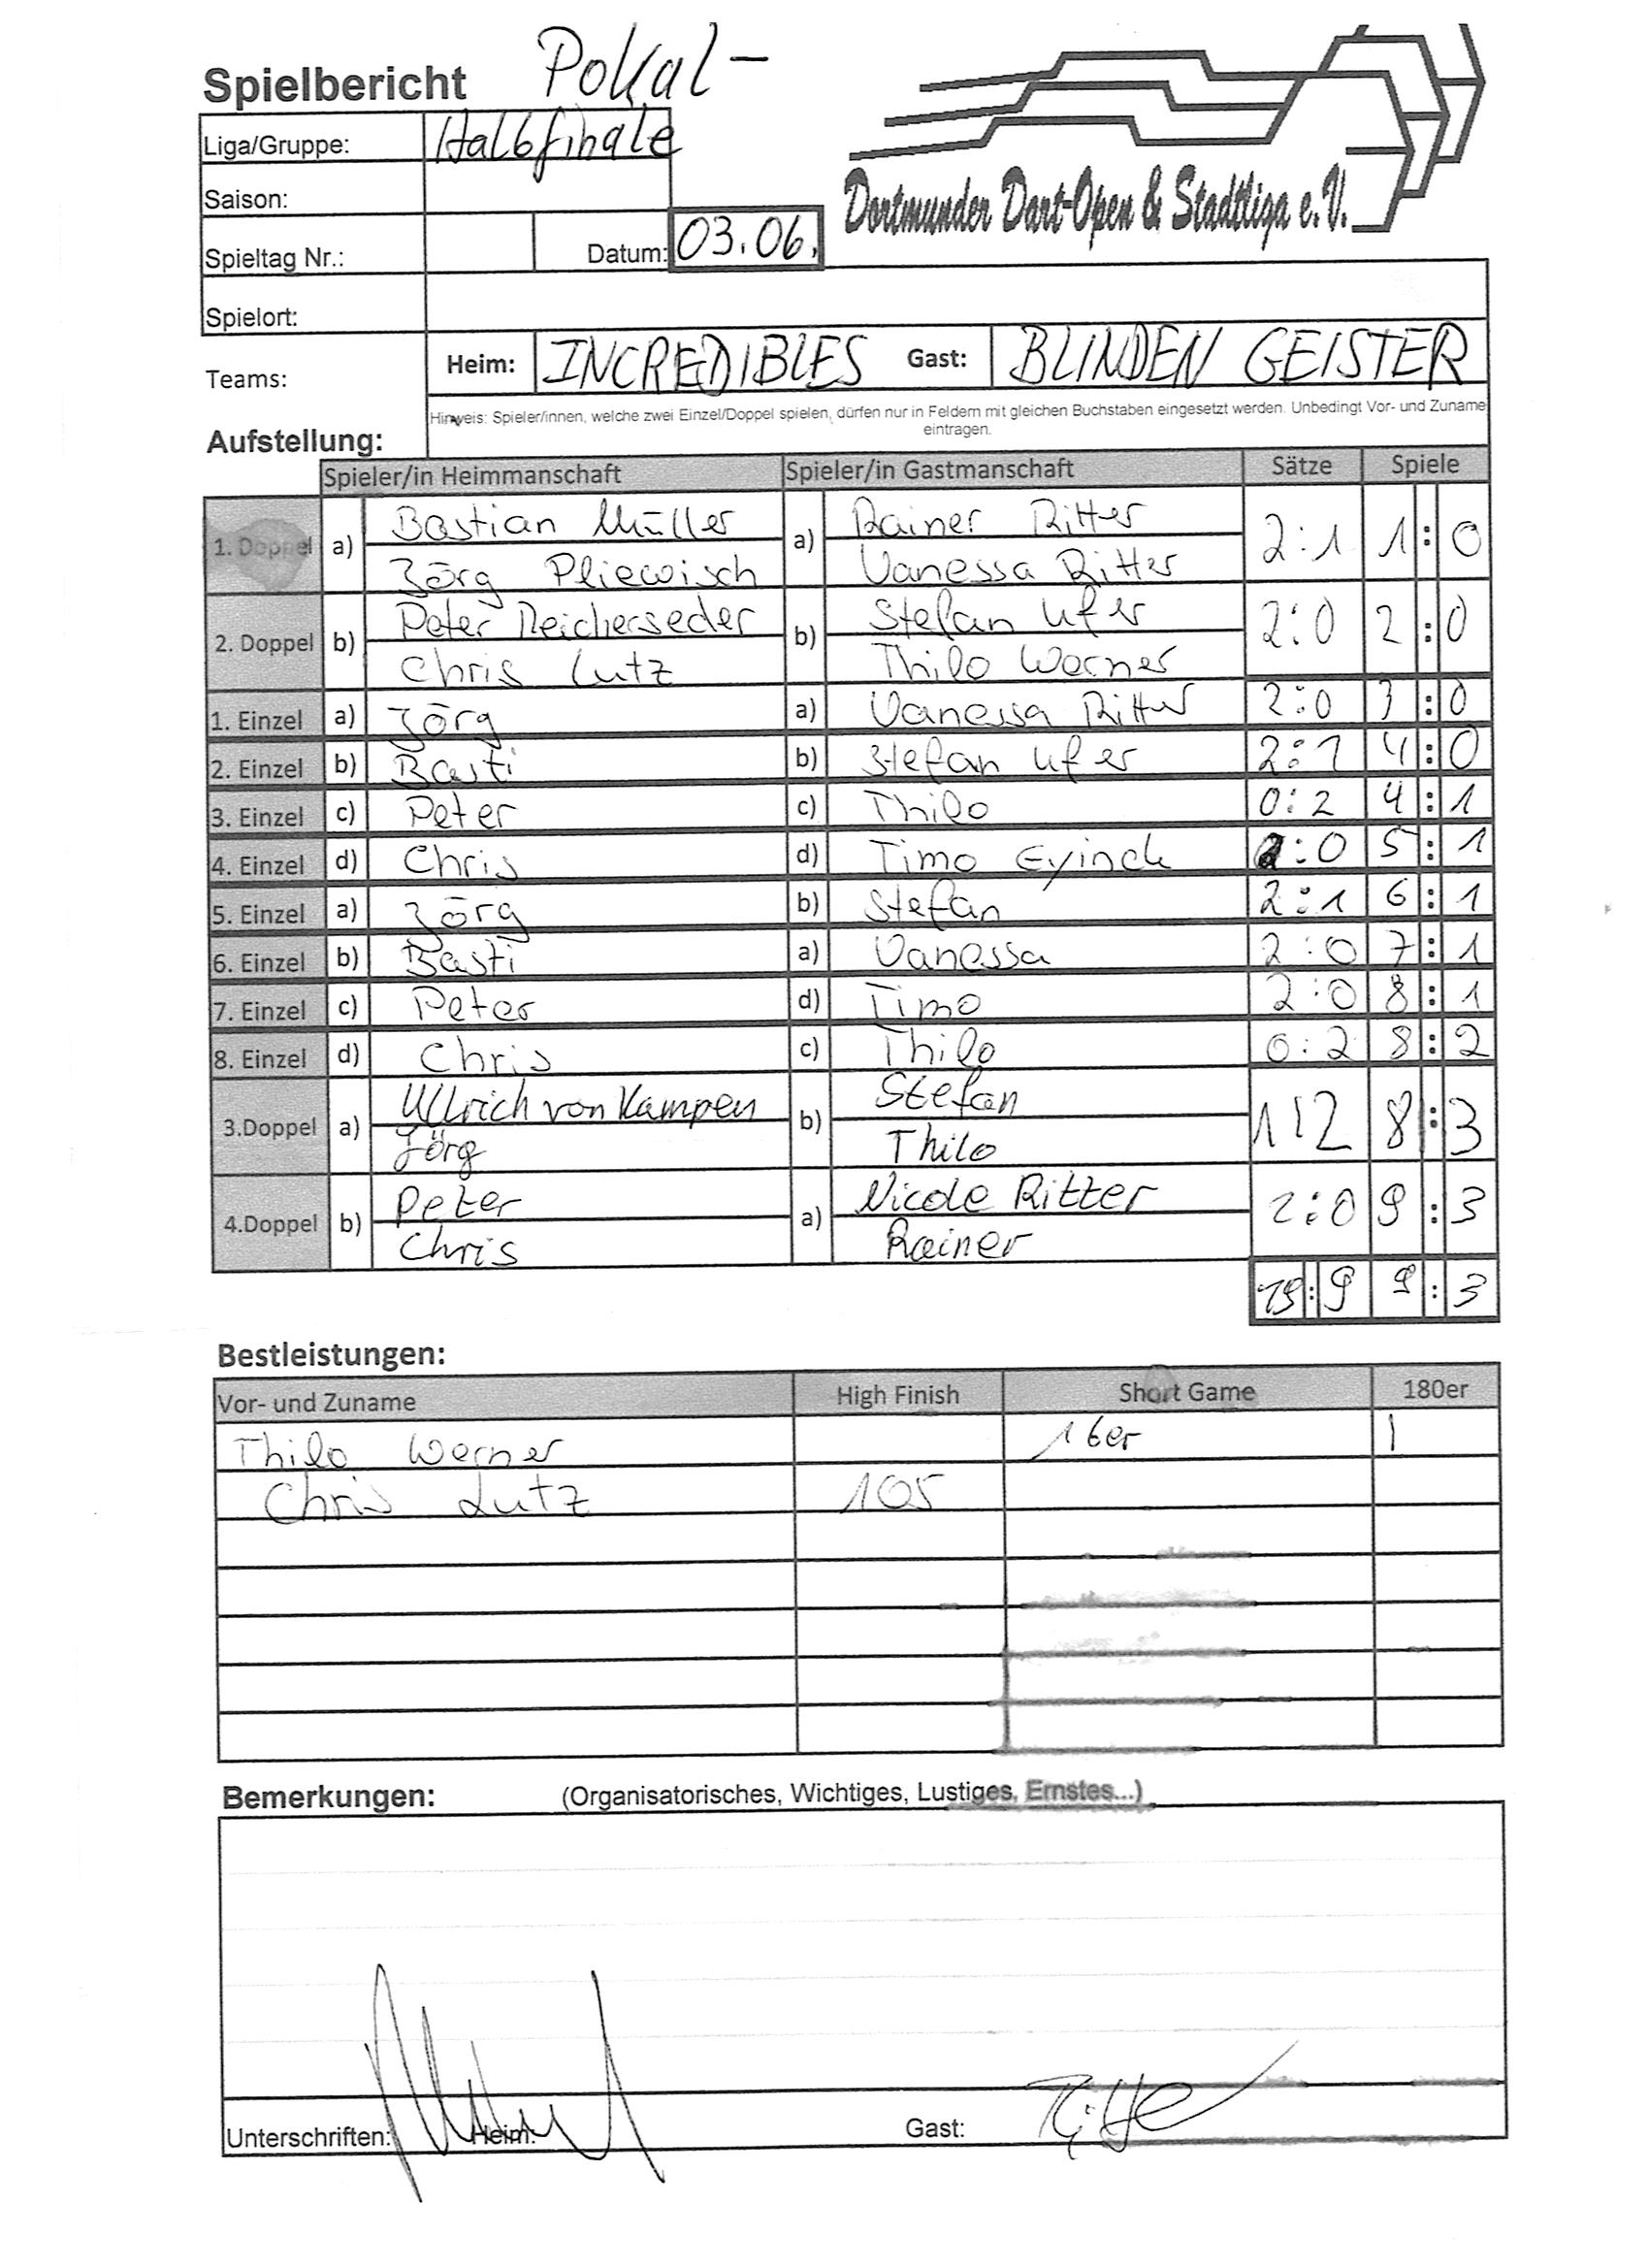 Spielbericht Pokal-
Liga/Gruppe: Halbfinale
Saison:
Spieltag Nr.: Datum: 03.06.
Dortmunder Dart-Open & Stadtliga e.V.
Spielort:
Teams: Heim: INCREDIBLES Gast: BLINDEN GEISTER
Hinweis: Spieler/innen, welche zwei Einzel/Doppel spielen, dürfen nur in Feldern mit gleichen Buchstaben eingesetzt werden. Unbedingt Vor- und Zuname
eintragen.
Aufstellung:
Spieler/in Heimmanschaft Spieler/in Gastmanschaft Sätze Spiele
1. Doppel a) Bastian Müller a) Rainer Ritter 2:1 1:0
Jörg Pliewisch Vanessa Ritter
2. Doppel b) Peter Reicherseder b) Stefan Ufer 2:0 2:0
Chris Lutz Thilo Werner
1. Einzel a) Jörg a) Vanessa Ritter 2:0 3:0
2. Einzel b) Basti b) Stefan Ufer 2:1 4:0
3. Einzel c) Peter c) Thilo 0:2 4:1
4. Einzel d) Chris d) Timo Eyinck 2:0 5:1
5. Einzel a) Jörg b) Stefan 2:1 6:1
6. Einzel b) Basti a) Vanessa 2:0 7:1
7. Einzel c) Peter d) Timo 2:0 8:1
8. Einzel d) Chris c) Thilo 0:2 8:2
3.Doppel a) Ullrich von Kampen b) Stefan 1:2 8:3
Jörg Thilo
4.Doppel b) Peter a) Nicole Ritter 2:0 9:3
Chris Rainer
19:9 9:3
Bestleistungen:
Vor- und Zuname High Finish Short Game 180er
Thilo Werner 16er |
Chris Lutz 105
Bemerkungen: (Organisatorisches, Wichtiges, Lustiges, Ernstes...)
Unterschriften: Heim: Gast: Ritter